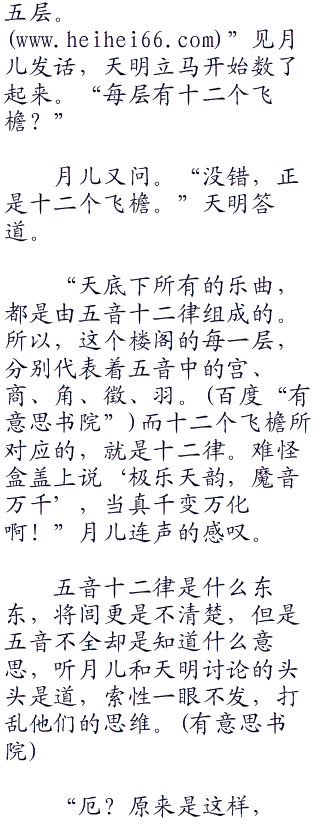 五层。
(www.heihei66.com)”见月
儿发话，天明立马开始数了
起来。“每层有十二个飞
檐？”
月儿又问。“没错，正
是十二个飞檐。”天明答
道。
“天底下所有的乐曲，
都是由五音十二律组成的。
所以，这个楼阁的每一层，
分别代表着五音中的宫、
商、角、徵、羽。(百度“有
意思书院”)而十二个飞檐所
对应的，就是十二律。难怪
盒盖上说‘极乐天韵，魔音
万千’，当真千变万化
啊！”月儿连声的感叹。
五音十二律是什么东
东，将闾更是不清楚，但是
五音不全却是知道什么意
思，听月儿和天明讨论的头
头是道，索性一眼不发，打
乱他们的思维。(有意思书
院)
“厄？原来是这样，